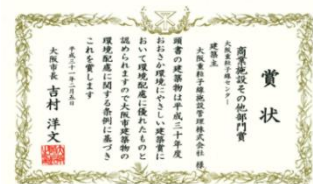 賞状
商業施設その他部門賞
大阪重粒子線センター
建築主
大阪重粒子線施設管理株式会社 様
頭書の建築物は平成三十年度
おおさか環境にやさしい建築賞に
おいて環境配慮に優れたものと
認められますので大阪市建築物の
環境配慮に関する条例に基づき
これを賞します
平成三十一年二月五日
大阪市長 吉村 洋文